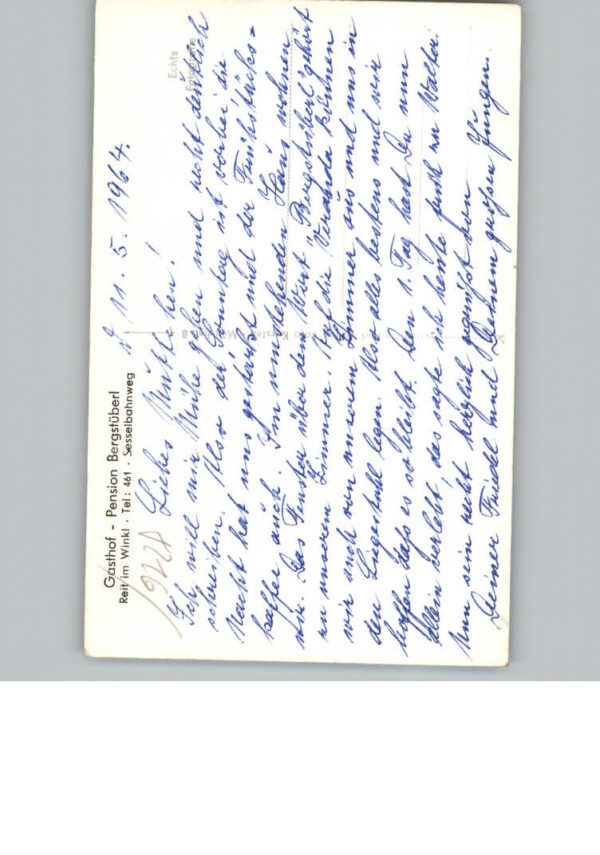 Gasthof - Pension Bergstüberl
Reit im Winkl · Tel: 461 · Sesselbahnweg
d 11. 5. 1964.
19228
Echte
Liebes Muttchen!
Ich will mir Mühe geben und recht deutlich
schreiben. Also der Sonntag ist vorbei die
Nacht hat uns getauft und der Frühstücks=
kaffee auch. Im umstehenden Haus wohnen
wir. Das Fenster über dem Wort "Bergstüberl" gehört
zu unserem Zimmer. Auf die Veranda können
wir auch von unserem Zimmer aus und uns in
den Liegestuhl legen. Also alles bestens und wir
hoffen daß es so bleibt. Den 1. Tag hast Du nun
allein verlebt, das sagte ich heute früh zu Walter.
Nun sei recht herzlich gegrüßt von
Deiner Friedel und Deinem großen Jungen.